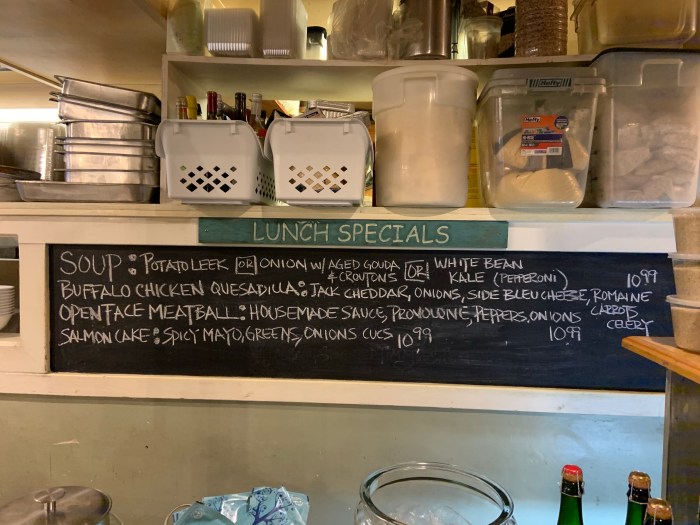 Hefty
LUNCH SPECIALS
SOUP: POTATO LEEK OR ONION W/ AGED GOUDA & CROUTONS OR WHITE BEAN KALE (PEPPERONI) 10.99
BUFFALO CHICKEN QUESADILLA: JACK CHEDDAR, ONIONS, SIDE BLEU CHEESE, ROMAINE CARROTS CELERY
OPENFACE MEATBALL: HOUSEMADE SAUCE, PROVOLONE, PEPPERS, ONIONS 10.99
SALMON CAKE: SPICY MAYO, GREENS, ONIONS CUCS 10.99